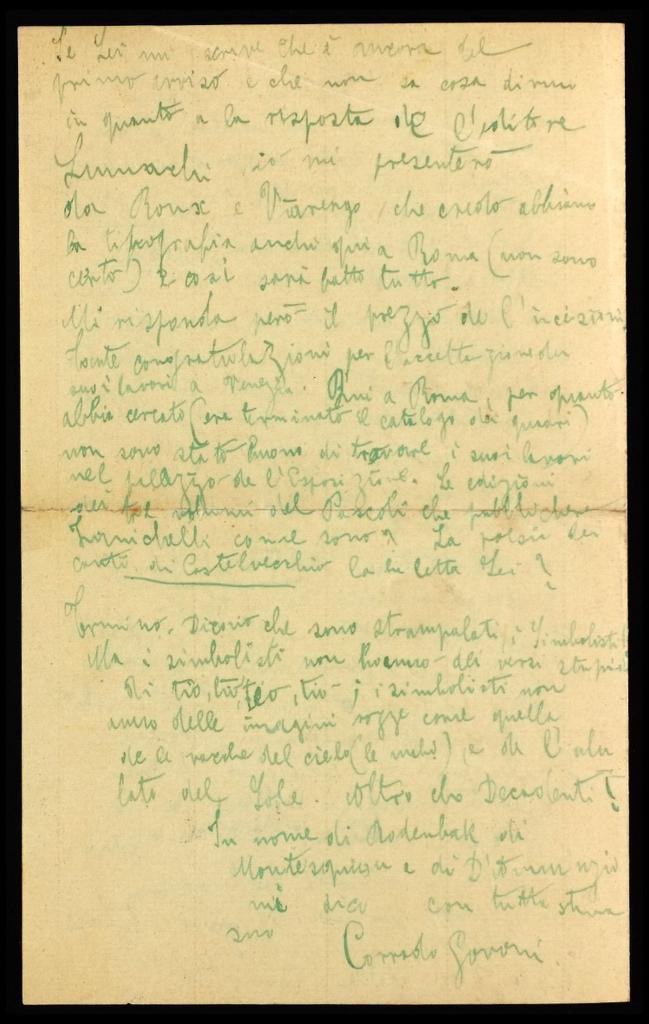 Se Lei mi scrive che è ancora del
primo avviso e che non sa cosa dirmi
in quanto a la risposta de l'editore
Lumachi io mi presenterò
da Roux e Viarengo, che credo abbiano
la tipografia anche qui a Roma (non sono
certo) e così sarà fatto tutto.
Mi risponda però il prezzo de l'incisioni
Tante congratulazioni per l'accettazione dei
suoi lavori a Venezia. Qui a Roma, per quanto
abbia cercato (era terminato il catalogo dei quadri)
non sono stato buono di trovare i suoi lavori
nel palazzo de l'Esposizione. Le edizioni
dei volumi del Pascoli che pubblicherà
Zanichelli come sono? La poesie dei
canti di Castelvecchio la ha letta Lei?
Termino. Dicono che sono strampalati i Simbolisti!
Ma i simbolisti non hanno dei versi stupidi
di tiò, tiò, tiò, tiò; i simbolisti non
anno delle imagini rozze come quella
de le vacche del cielo (le nubi) e de l'alu
lato del Sole. Altro che Decadenti!
In nome di Rodenbak di
Montesquieu e di D'Annunzio
mi dico con tutta stima
suo Corrado Govoni.